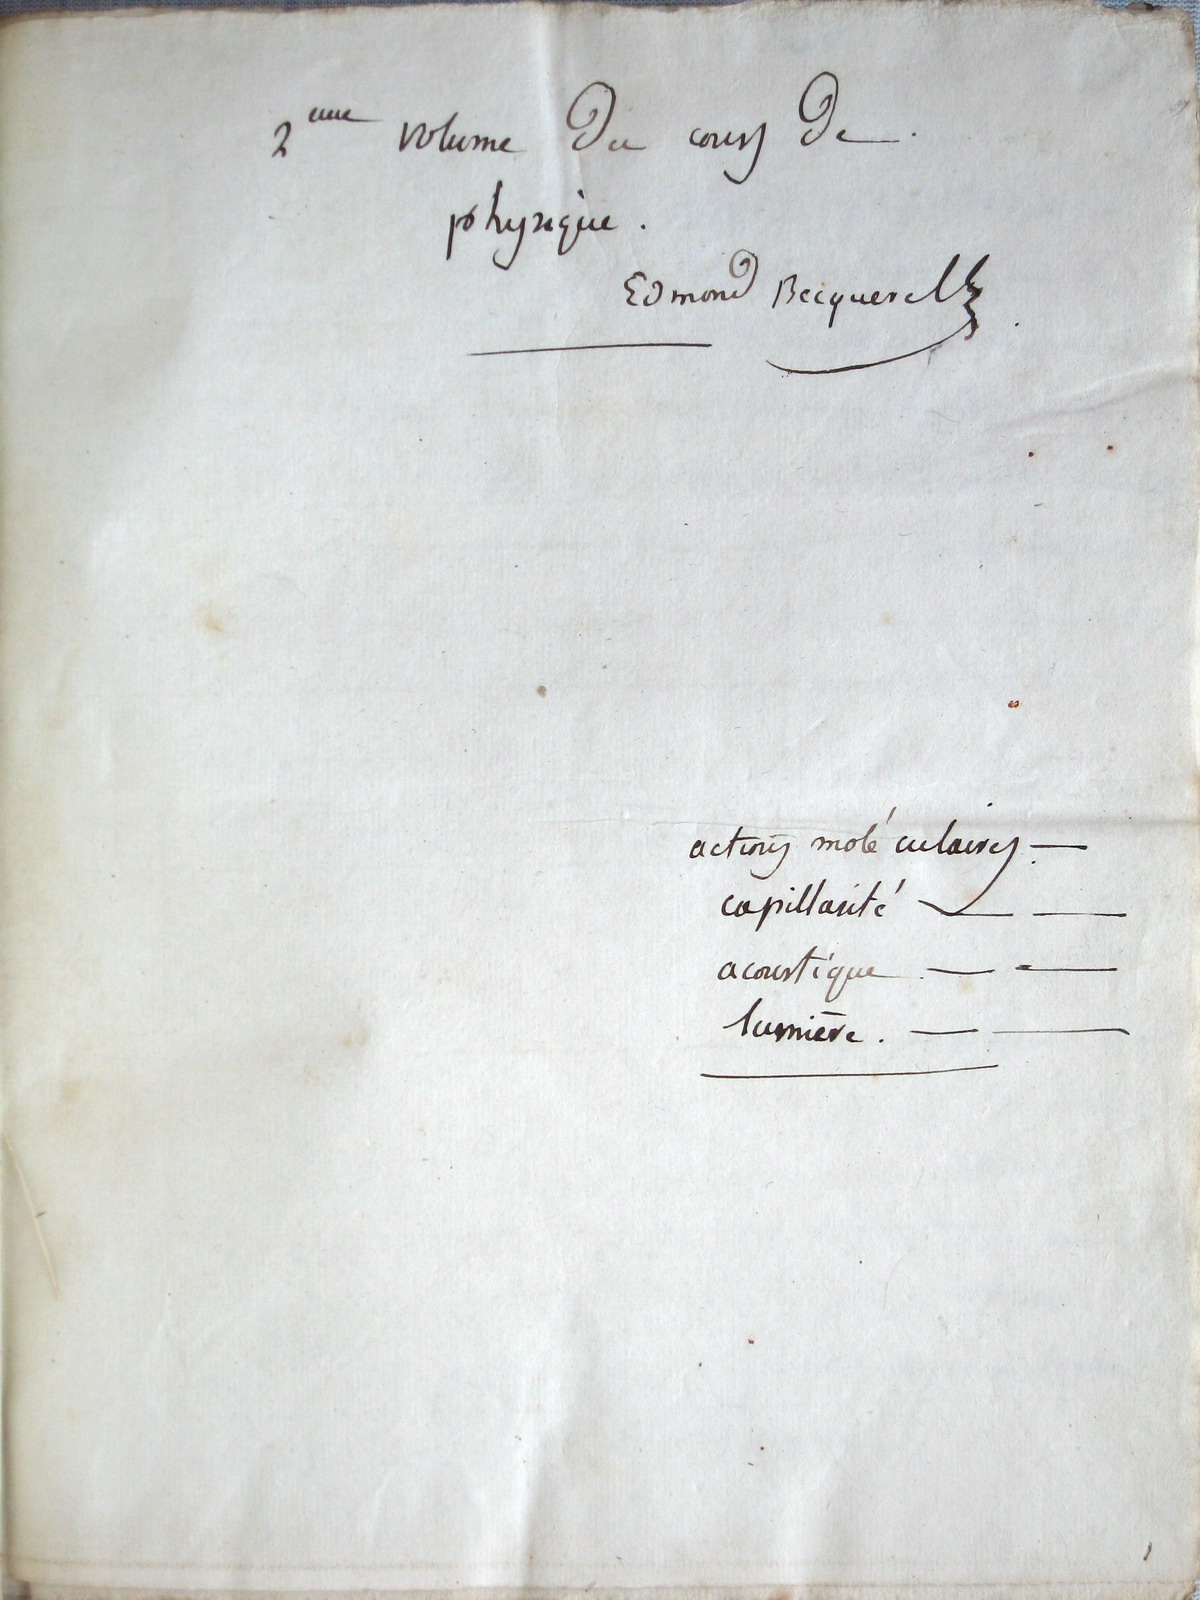 2eme volume du cours de.
physique.
Edmond Becquerel
actions moléculaires. —
capillarité — —
acoustique — —
lumière. — —